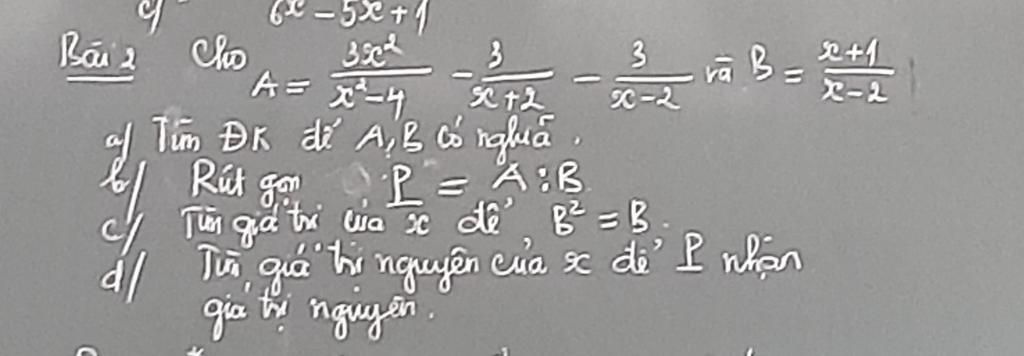 c) 6x - 5x + 1
Bài 2 Cho A = 3x²/(x²-4) - 3/(x+2) - 3/(x-2) và B = (x+1)/(x-2)
a/ Tìm ĐK để A, B có nghĩa.
b/ Rút gọn P = A : B
c/ Tìm giá trị của x để B² = B.
d/ Tìm giá trị nguyên của x để P nhận
giá trị nguyên.